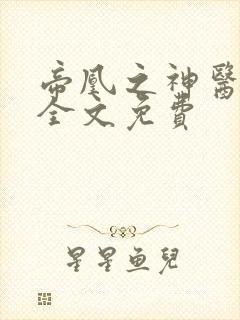 帝凰之神醫
全文免費
星星魚兒